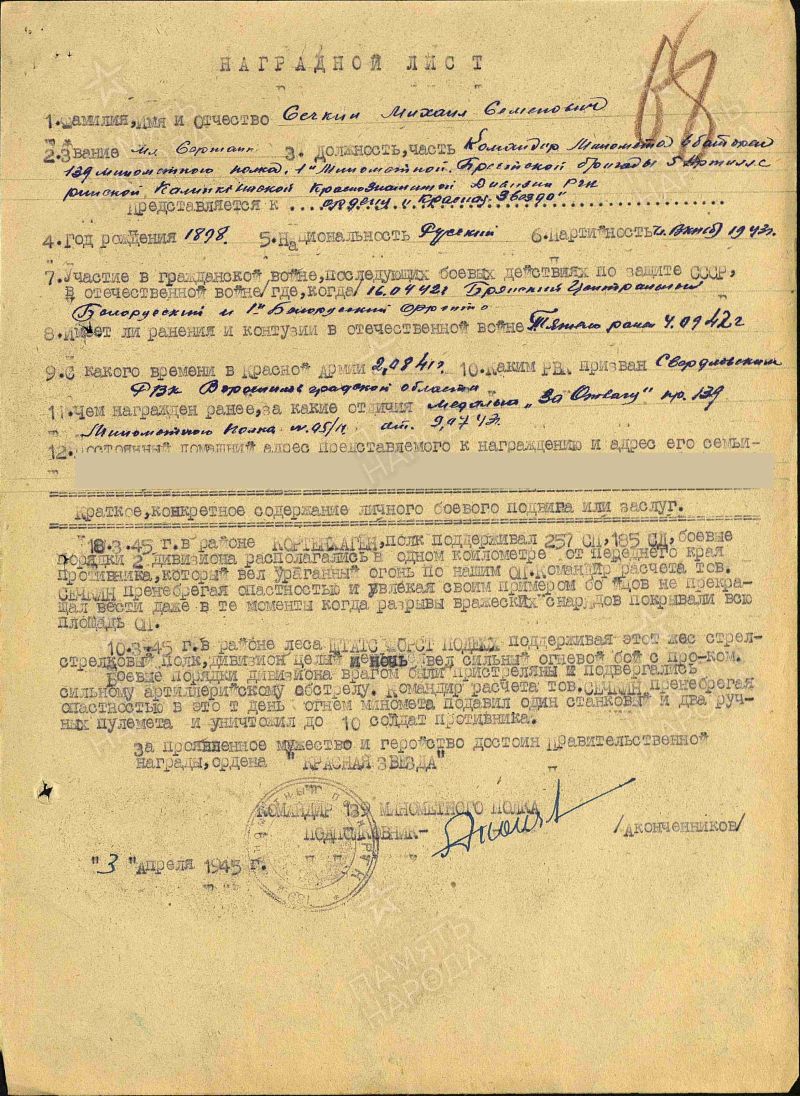 НАГРАДНОЙ ЛИСТ
68
1.Фамилия,Имя и Отчество Сечкин Михаил Семенович
2.Звание мл Сержант 3. Должность,часть Командир Миномета 6 батареи
139 минометного полка. 1й Минометной. Брестской бригады 5 Артилле
рийской Калинковичской Краснознаменной Дивизии РГК
Представляется к ордену "Красная Звезда"
4.Год рождения 1898. 5.Национальность Русский 6.Партийность ВКП(б) 1943г.
7.Участие в гражданской войне,последующих боевых действиях по защите СССР,
в отечественной войне/где,когда/ 16.04.42г Брянский Центральный
Белорусский и 1й Белорусский фронта
8.Имеет ли ранения и контузии в отечественной войне Тяжело ранен 4.09.42г
9.С какого времени в Красной Армии 2,08 41г. 10.Каким РВК призван Свердловским
РВК Ворошиловградской области
11.Чем награжден ранее,за какие отличия Медалью "За Отвагу" пр. 139
Минометного Полка от. 9,07 43г.
12.Постоянный домашний адрес Представляемого к награждению и адрес его семьи-
Краткое,конкретное содержание личного боевого подвига или заслуг.
18.3.45 г.в районе КОРТЕНХАГЕН,полк поддерживал 257 СП,185 СД,боевые
порядки 2 дивизиона располагались в одном коилометре от переднего края
противника,который вел ураганный огонь по нашим ОП.Командир расчета тов.
СЕЧКИН пренебрегая опастностью и увлекая своим примером бойцов не прекра-
щал вести даже в те моменты когда разрывы вражеских снарядов покрывали всю
площадь ОП.
10.3.45 г.в районе леса ШТАТС ФОРСТ поддерживая этот жес стрел-
стрелковый полк,дивизион целый и ночь вел сильный огневой бой с про-ком.
Боевые порядки дивизиона врагом были пристреляны и подвергались
сильному артиллерийскому обстрелу. Командир расчета тов.СЕЧКИН пренебрегая
опастностью в это т день огнем миномета подавил один станковый и два руч-
ных пулемета и уничтожил до 10 солдат противника.
За проявленное мужество и геройство достоин Правительственной
награды,ордена "КРАСНАЯ ЗВЕЗДА"
КОМАНДИР 139 МИНОМЕТНОГО ПОЛКА
ПОДПОЛКОВНИК- /Аконченников/
"3 "Апреля 1945 г.
ПАМЯТЬ
НАРОДА